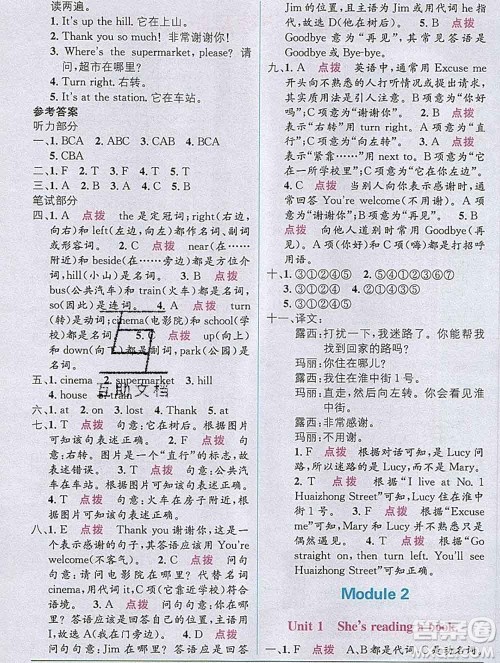 读两遍。
1. It's up the hill. 它在山上。
2. Thank you so much! 非常谢谢你!
3. Where's the supermarket, please? 请问,超市在哪里?
4. Turn right. 右转。
5. It's at the station. 它在车站。
参考答案
听力部分
一、1. BCA 2. ABC 3. CAB 4. BCA
5. CBA
二、1. F 2. T 3. T 4. F 5. T
三、1. A 2. B 3. C 4. A 5. C
笔试部分
四、1. A 点拨 the 是定冠词;right(右边,向右)和left(左边,向左)都作名词、副词或形容词。 2. C 点拨 near(在……附近)和beside(在……旁边)都是方位介词,hill(小山)是名词。 3. B 点拨
bus(公共汽车)和train(火车)是名词,so(因此)是连词。 4. A 点拨 turn
(转)是动词;cinema(电影院)和school(学校)是名词。 5. A 点拨 up(向上)和down(向下)都是副词,park(公园)是名词。
五、1. cinema 2. supermarket 3. hill
4. house 5. train
六、1. at 2. on 3. lost 4. Thank 5. at
七、1. T 点拨 句意:它在房子后面。根据图片可知该句表述正确。
2. F 点拨 图片上是一个“直行”的标志,因此表述错误。
3. T 点拨 句意:公共汽车在车站。根据图片可知该句表述正确。
4. T 点拨 句意:火车在房子附近,根据图片可知该句表述正确。
八、1. E 点拨 Thank you 谢谢你,这是一句表示感谢的句子,其答语应该用You're welcome(不客气)。
2. C 点拨 问句句意:请问电影院在哪里?代替名词cinema,因此只有It's up the hill.符合语境。
3. A 点拨 问句句意:
4. B 点拨 问句句意:
Jim 的位置,且主语为Jim或用代词he代替,其他选项不符合。 5. D 点拨
Goodbye意为“再见”,其常见答语是Goodbye或Bye-bye。
九、1. A 点拨 英语中,通常用Excuse me开头向不熟悉的人打听情况或提出请求,其实质用法是引人注意。B项意为“你好吗?”;C项意为“谢谢你”。 2. A 点拨
表示“右转”用turn right。B项意为“直行”;C项意为“向左转”。 3. B 点拨
表示“紧靠……”用next to。B项意为“它在我旁边”;C项意为“它在你左边”。
4. C 点拨 当别人向你表示感谢时,你应回答You're welcome(不用谢)。B项意为“再见”。 5. A 点拨 Hello(你好)和Hi(你好)都是打招呼用语。
十、1. ③①②④⑤ 2. ⑤④①②③⑥⑦
3. ①③②④⑤
十一、译文:
露西:打扰一下,我迷路了。你能帮我找到回家的路吗?
玛丽:你住在哪里?
露西:我住在淮中街1号。
玛丽:直走,然后向左转。你就能看到淮中街了。
露西:非常感谢。
玛丽:不用谢。
1. F 点拨 根据对话可知是Lucy问路,所以迷路的是Lucy,而不是Mary。
2. T 点拨 根据“I live at No. 1 Huaizhong Street”可知,Lucy住在淮中街1号。 3. F 点拨 根据“Excuse me”可知,Mary和Lucy并不认识,只是偶然遇见。 4. T 点拨 根据“Go straight on, then turn left, you can see Huaizhong Street.”可知表述正确。
Module 2
Unit 1 She's reading a book.
一、1. A 点拨 A、B都是代词,C是动名词。
互助文档